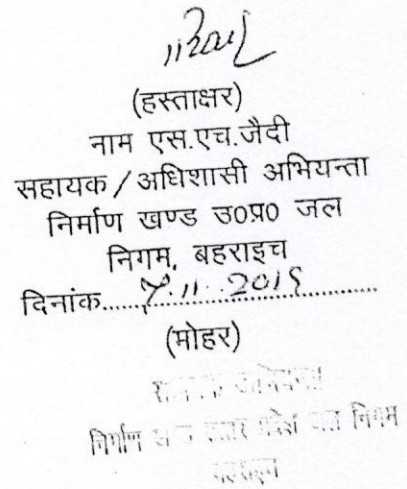 (हस्ताक्षर)
नाम एस.एच.जैदी
सहायक / अधिशासी अभियन्ता
निर्माण खण्ड उ०प्र० जल
निगम, बहराइच
दिनांक.....7.11.2015..........
(मोहर)
निर्माण जल निगम